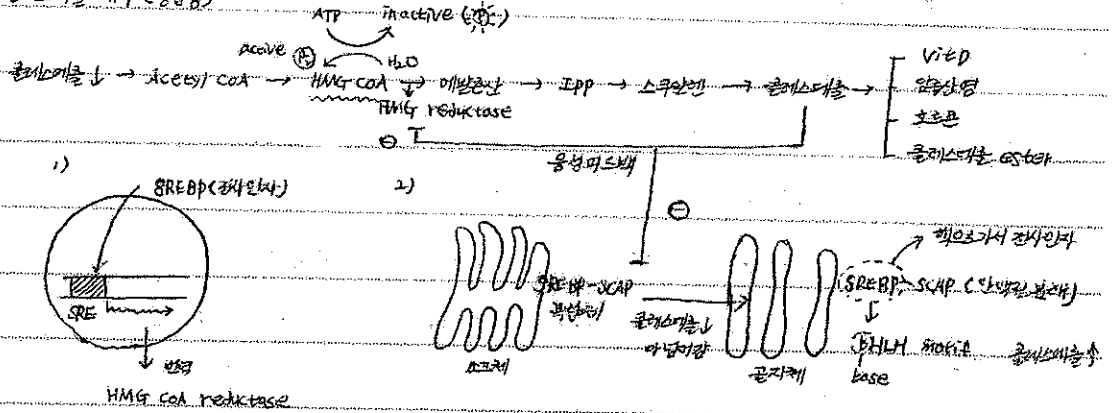 ATP inactive (P)
active P H₂O
콜레스테롤↓ → Acetyl CoA → HMG CoA → 메발론산 → IPP → 스쿠알렌 → 콜레스테롤 →
HMG reductase
Vit D
담즙산염
호르몬
콜레스테롤 ester
⊖
음성피드백
1)
SREBP(전사인자)
SRE
발현
HMG CoA reductase
2)
⊖
SREBP-SCAP
복합체
소포체
콜레스테롤↓
골지체
핵으로가서 전사인자
SREBP-SCAP (단백질 분해)
bHLH motif 콜레스테롤↑
base